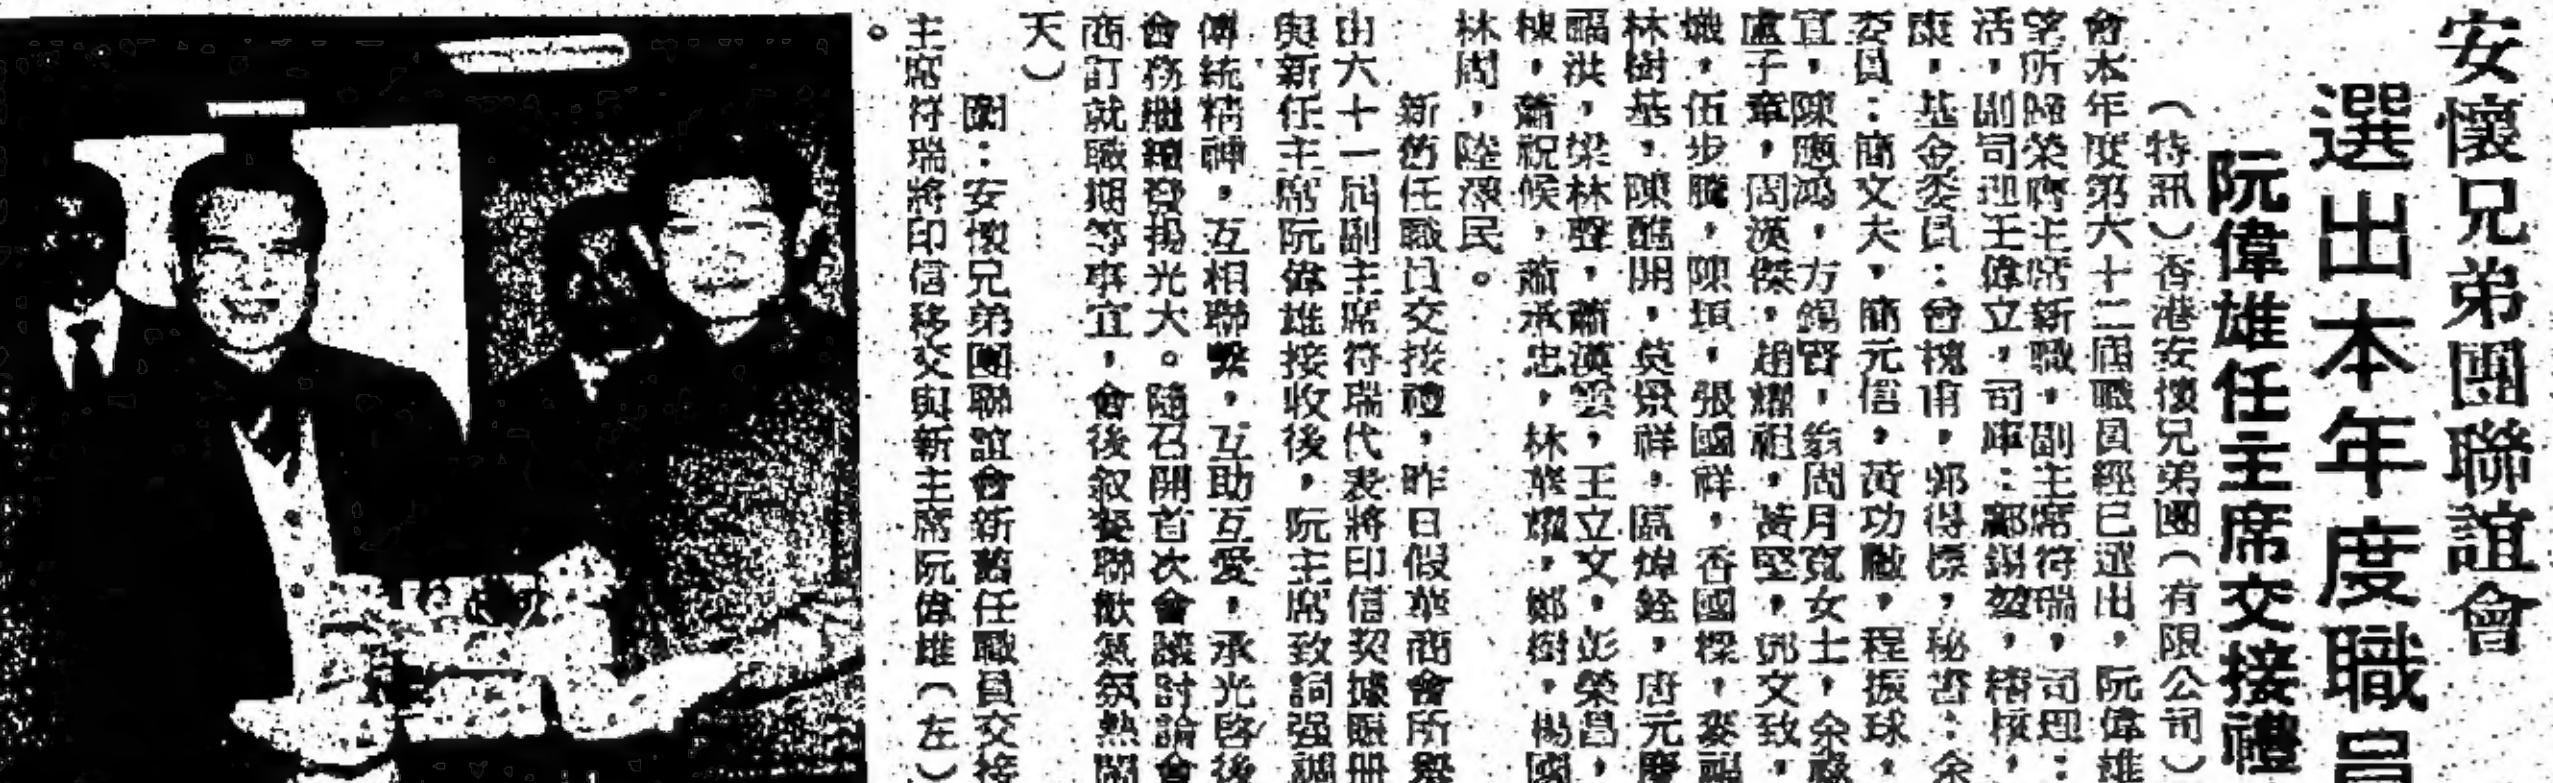 安懷兄弟團聯誼會
選出本年度職員
阮偉雄任主席交接禮
（特訊）香港安懷兄弟團（有限公司）
會本年度第六十二屆職員經已選出，阮偉雄
望所歸榮膺主席新職，副主席符瑞，司理：
活，副司理王偉立，司庫：鄺錫堃，稽核，
康，基金委員：曾槐甫，鄧得標，秘書：余
委員：簡文夫，簡元信，黃功，程振球，
宜，陳應鴻，方錫，翁周月寬女士，余
盧子章，周漢傑，趙耀祖，黃堅，鄧文致，
，伍步騰，陳垣，張國祥，香國樑，麥福
林樹基，陳開，莫景祥，區焯銓，唐元慶
福洪，梁林聲，蕭漢雲，王立文，彭榮昌，
棟，蕭祝候，蕭承忠，林耀，鄭樹，楊國
林周，陸民。
新舊任職員交接禮，昨日假華商會所舉
由六十一屆副主席符瑞代表將印信契據賬册
與新任主席阮偉雄接收後，阮主席致詞强調
傳統精神，互相聯繫，互助互愛，承光啓後
會務繼續發揚光大。隨召開首次會議討論會
商訂就職期等事宜，會後叙餐聯歡氣氛熱鬧
天）
圖：安懷兄弟團聯誼會新舊任職員交接
主席符瑞將印信移交與新主席阮偉雄（左）
。